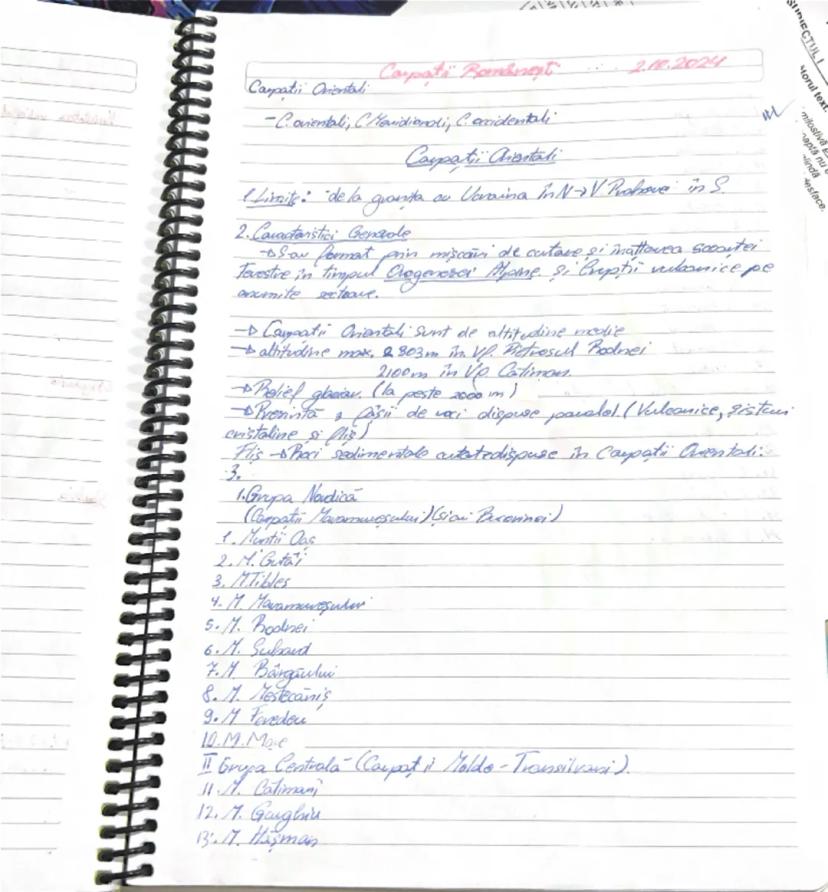 Carpații Românești 2.10.2024
Carpații Orientali
- C. orientali, C. Meridionali, C. occidentali
Carpații Orientali
1. Limite: de la granița cu Ucraina în N → V. Prahovei în S.
2. Caracteristici Generale
→ S-au format prin mișcări de cutare și înălțarea scoarței
terestre în timpul Orogenezei Alpine și Erupții vulcanice pe
anumite sectoare.
→ Carpații Orientali sunt de altitudine medie
→ altitudine max. 2303m în Vf. Pietrosul Rodnei
2100m în Vf. Căliman
→ Relief glaciar. (la peste 2000 m)
→ Prezintă 3 fâșii de roci dispuse paralel. (Vulcanice, șisturi
cristaline și fliș)
Fliș → Roci sedimentale cutate dispuse în Carpații Orientali.
3.
1. Grupa Nordică
(Carpații Maramureșului) (și ai Bucovinei)
1. Munții Oaș
2. M. Gutâi
3. M. Țibleș
4. M. Maramureșului
5. M. Rodnei
6. M. Suhard
7. M Bârgăului
8. M. Mestecăniș
9. M Feredeu
10. M. Mare
II Grupa Centrală - (Carpații Moldo - Transilvani).
11. M. Călimani
12. M. Gurghiu
13. M. Hășmaș